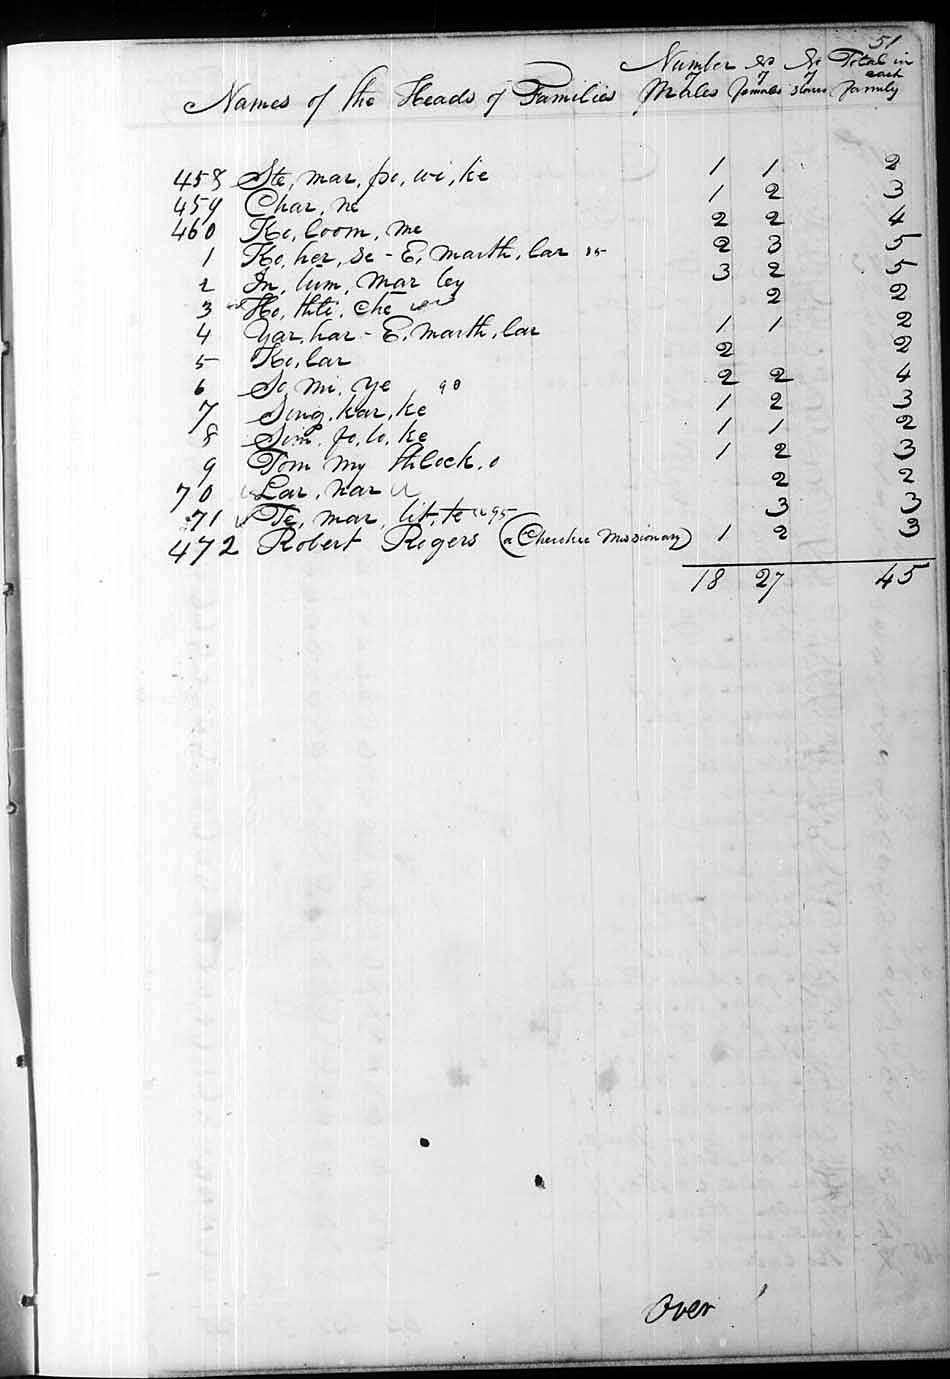 51
Names of the Heads of Families Number of Males No of females No of slaves Total in each family
458 Ste, mar, po, wi, ke 1 1 2
459 Char, ne 1 2 3
460 Ko, loom, me 2 2 4
1 Ko, her, se - E, marth, lar 85 2 3 5
2 In, lum, mar ley 3 2 5
3 Ho, thli, che 2 2
4 Yar, har - E, marth, lar 1 1 2
5 Ko, lar 2 2
6 So mi, ye 90 2 2 4
7 Sing, kar, ke 1 2 3
8 Sim, fo, lo, ke 1 1 2
9 Tom my thlock, o 1 2 3
70 Lar, nar 2 2
71 Te, mar, lit, te 95 3 3
472 Robert Rogers (a Cherokee Missionary) 1 2 3
18 27 45
Over